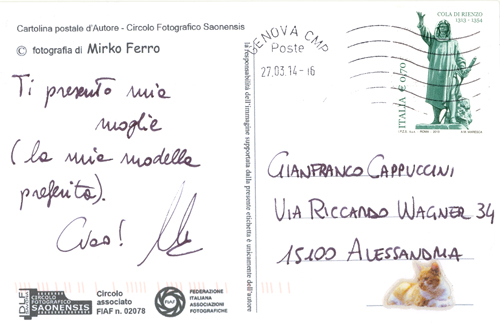 Cartolina postale d'Autore - Circolo Fotografico Saonensis
© fotografia di Mirko Ferro
Ti presento mia
moglie
(la mia modella
preferita).
Ciao!
CIRCOLO
FOTOGRAFICO
SAONENSIS
Circolo
associato
FIAF n. 02078
FIAF
FEDERAZIONE
ITALIANA
ASSOCIAZIONI
FOTOGRAFICHE
la responsabilità dell'immagine supportata dalla presente etichetta è unicamente dell'autore
GENOVA CMP
Poste
27.03.14-16
COLA DI RIENZO
1313 - 1354
ITALIA € 0,70
GIANFRANCO CAPPUCCINI
VIA RICCARDO WAGNER 34
15100 ALESSANDRIA